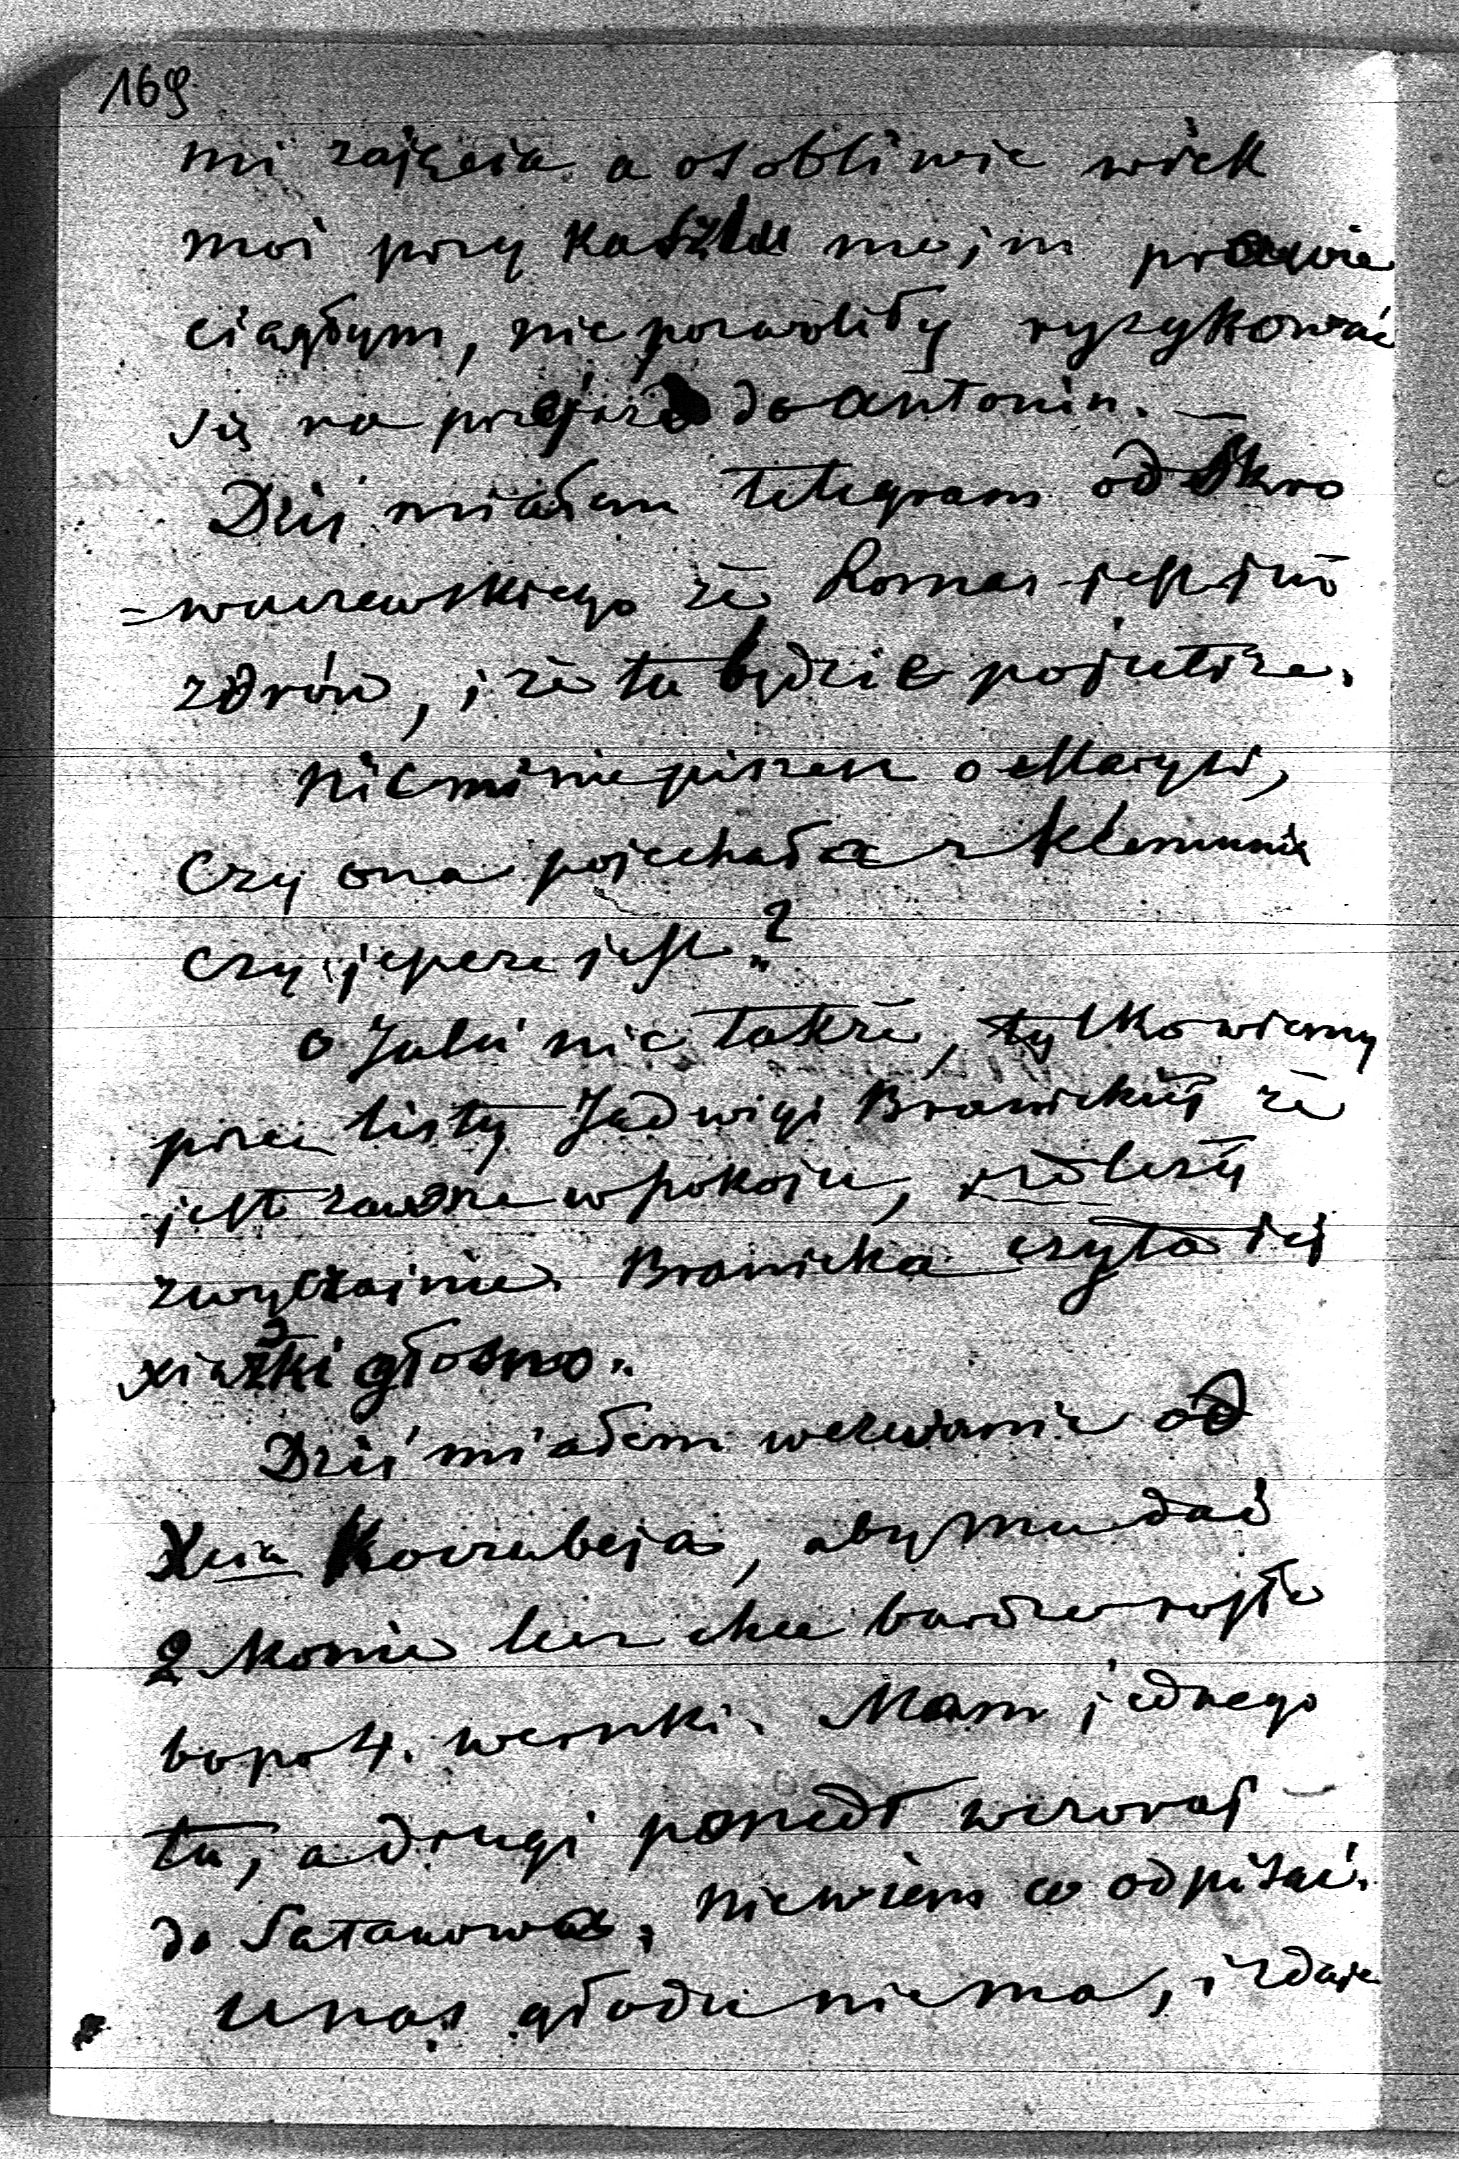 169
mi zajęcia a osobliwie wiek
mói przy kaszlu mojm prawie
ciagłym, nie pozwoliły ryzykować
się na przejazd do Antonin. —
Dziś miałem telegram od Skro
=waczewskiego że Roman jest już
zdrów, i że tu będzie pojutrze.
Nic mi nie piszesz o Maryli,
czy ona pojechała z Klemunią
czy jeszcze jest?
o Julii nic także, tylko wiemy
przez listy Jadwigi Branickiéj że
jest zawsze w pokoju, i że leży
zwyczajnie. Branicka czyta jéj
xiażki głosno.
Dziś miałem wezwanie od
Xcia Koczubeja, aby mu dać
2 konie lecz chce bardzo rosłe
bo po 4. werszki. Mam jednego
tu, a drugi poszedł wczoraj
do Satanowa, niewiem co odpisać.
U nas głodu niema, i zdaje